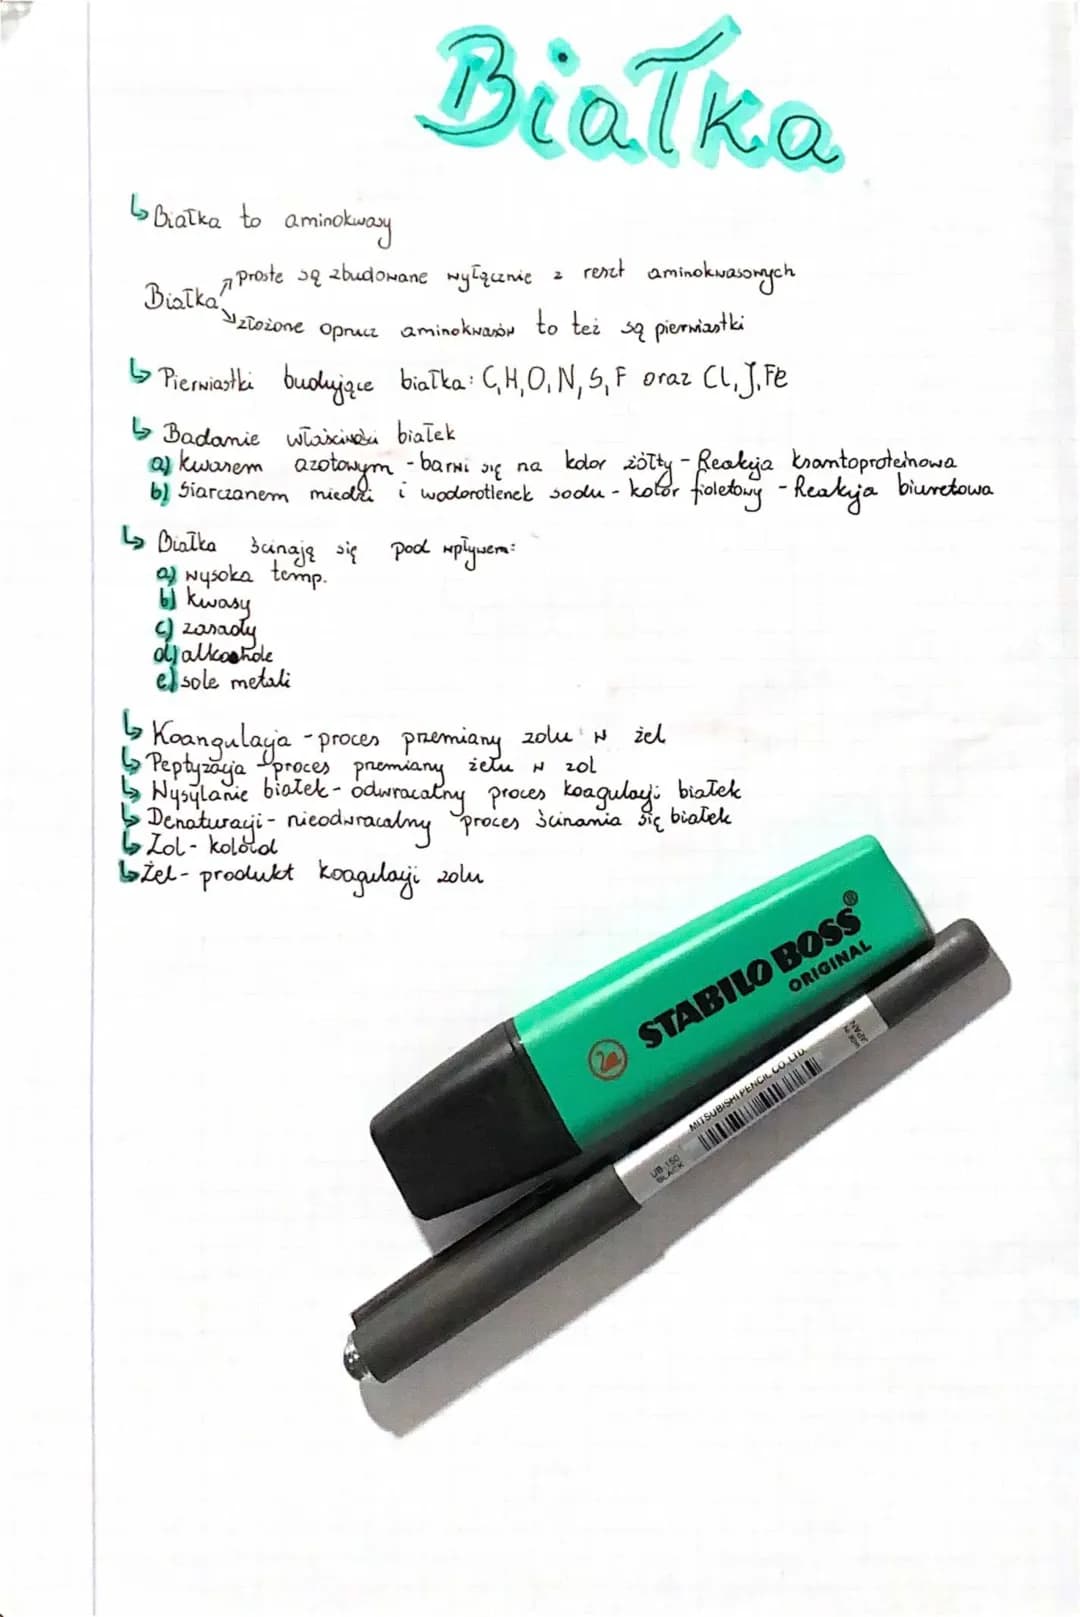 Białka
↳ Białka to aminokwasy
Białka
↗ proste są zbudowane wyłącznie z reszt aminokwasowych
↘ złożone oprucz aminokwasów to też są pierwiastki
↳ Pierwiastki budujące białka: C, H, O, N, S, F oraz Cl, J, Fe
↳ Badanie właściwości białek
a) kwasem azotowym - barwi się na kolor żółty - Reakcja ksantoproteinowa
b) Siarczanem miedzi i wodorotlenek sodu - kolor fioletowy - Reakcja biuretowa
↳ Białka ścinają się pod wpływem:
a) wysoka temp.
b) kwasy
c) zasady
d) alkohole
e) sole metali
↳ Koangulacja - proces przemiany zolu w żel
↳ Peptyzacja - proces przemiany żelu w zol
↳ Wysylanie białek - odwracalny proces koagulacji białek
↳ Denaturacji - nieodwracalny proces ścinania się białek
↳ Zol - koloid
↳ Żel - produkt koagulacji zolu
STABILO BOSS®
ORIGINAL
MITSUBISHI PENCIL CO., LTD.
MADE IN JAPAN
UB-150
BLACK